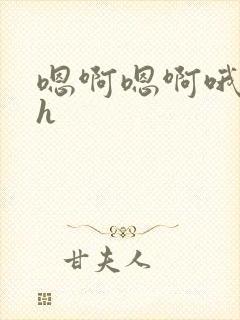 嗯啊嗯啊哦
h
甘夫人